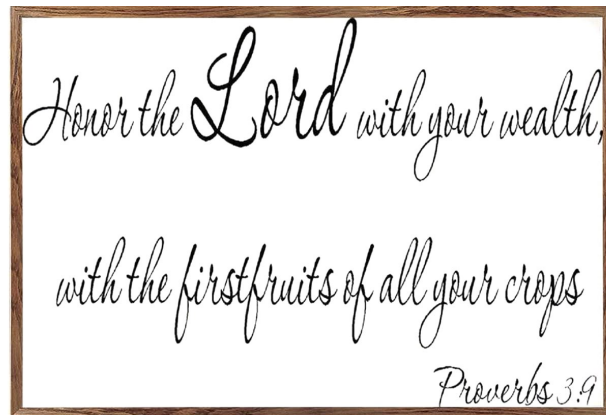 Honor the Lord with your wealth,
with the firstfruits of all your crops
Proverbs 3:9